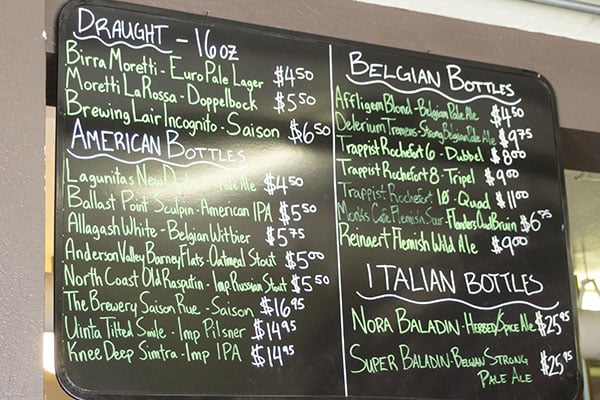 DRAUGHT - 16oz
Birra Moretti - Euro Pale Lager $4.50
Moretti La Rossa - Doppelbock $5.50
Brewing Lair Incognito - Saison $6.50
AMERICAN BOTTLES
Lagunitas New - Pale Ale $4.50
Ballast Point Sculpin - American IPA $5.50
Allagash White - Belgian Witbier $5.75
Anderson Valley Barney Flats - Oatmeal Stout $5.00
North Coast Old Rasputin - Imp Russian Stout $5.50
The Brewery Saison Rue - Saison $16.95
Uinta Tilted Smile - Imp Pilsner $14.95
Knee Deep Simtra - Imp IPA $14.95
BELGIAN BOTTLES
Affligem Blond - Belgian Pale Ale $4.50
Delerium Tremens - Strong Belgian Pale Ale $9.75
Trappist Rochefort 6 - Dubbel $8.00
Trappist Rochefort 8 - Tripel $9.00
Trappist Rochefort 10 - Quad $11.00
Monks Cafe Flemish Sour - Flanders Oud Bruin $6.75
Reinaert Flemish Wild Ale $9.00
ITALIAN BOTTLES
NORA BALADIN - HERBED/SPICE Ale $25.95
SUPER BALADIN - BELGIAN STRONG
PALE ALE $25.95